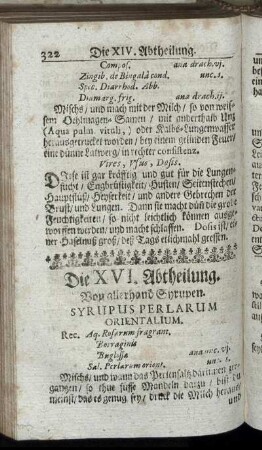 322 Die XIV. Abtheilung.
Com. os. ana drach. vij.
Zingib. de Bengalâ cond. unc. i.
Spec. Diarrhod. Abb.
Diamarg. frig. ana drach. ij.
Mischs / und mach mit der Milch / so von weis-
sem Oehlmagen-Samen / mit anderthalb Unz
(Aqua palm. vitalis,) oder Kalbs-Lungenwasser
herausgetrucket worden / bey einem gelinden Feuer /
eine dünne Latwerg / in rechter consistenz.
Vires, Usus, Dosis.
Diese ist gar kräfftig und gut für die Lungen-
sucht / Engbrüstigkeit / Husten / Seitenstechen /
Hauptfluß / Heyserkeit / und andre Gebrechen der
Brust / und Lungen. Dann sie macht düst die grobe
Feuchtigkeiten / so nicht leichtlich können ausge-
worffen werden / und macht schlaffen. Dosis ist / ei-
ner Haselnuß groß / deß Tags etlichmahl gessen.
Die XVI. Abtheilung.
Von allerhand Syrupen.
SYRUPUS PERLARUM
ORIENTALIUM.
Rec. Aq. Rosarum fragrant.
Borraginis
Buglossæ ana unc. vij.
Sal. Perlarum orient. unc. s.
Mischs / und wann das Perlensalz darinnen zer-
gangen / so thue süsse Mandeln darzu / biß du
meinst / das es genug sey / drucke die Milch heraus /
und